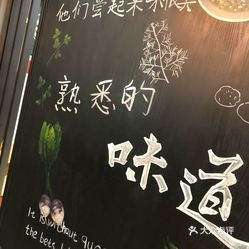 他们尝起来
熟悉的
味道
It is without
the best
大众点评